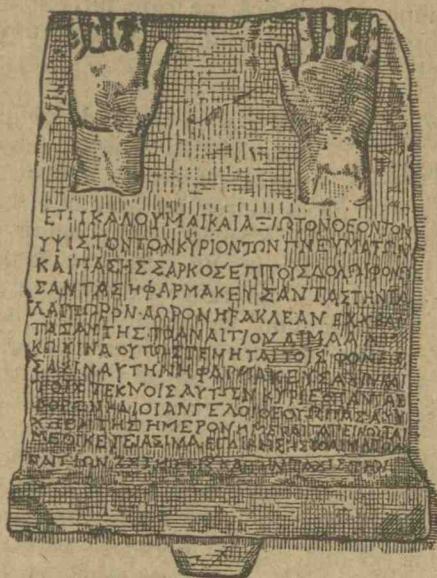 ΕΠΙΚΑΛΟΥΜΑΙΚΑΙΑΞΙΩΤΟΝΘΕΟΝΤΟΝ
ΥΨΙΣΤΟΝΤΟΝΚΥΡΙΟΝΤΩΝΠΝΕΥΜΑΤΩΝ
ΚΑΙΠΑΣΗΣΣΑΡΚΟΣΕΠΙΤΟΥΣΔΟΛΩΙΦΟΝΕΥ
ΣΑΝΤΑΣΗΦΑΡΜΑΚΕΥΣΑΝΤΑΣΤΗΝΤΑ
ΛΑΙΠΩΡΟΝΑΩΡΟΝΗΡΑΚΛΕΑΝΕΧΧΕΑΝ
ΤΑΣΑΥΤΗΣΤΟΑΝΑΙΤΙΟΝΑΙΜΑΑΔΙ
ΚΩΣΙΝΑΟΥΤΩΣΓΕΝΗΤΑΙΤΟΙΣΦΟΝΕΥ
ΣΑΣΙΝΑΥΤΗΝΗΦΑΡΜΑΚΕΥΣΑΣΙΝΚΑΙ
ΤΟΙΣΤΕΚΝΟΙΣΑΥΤΩΝΚΥΡΙΕΟΠΑΝΤΑΕ
ΦΟΡΩΝΚΑΙΟΙΑΝΓΕΛΟΙΘΕΟΥΩΠΑΣΑΨΥ
ΧΗΕΝΤΗΣΗΜΕΡΟΝΗΜΕΡΑΙΤΑΠΕΙΝΟΥΤΑΙ